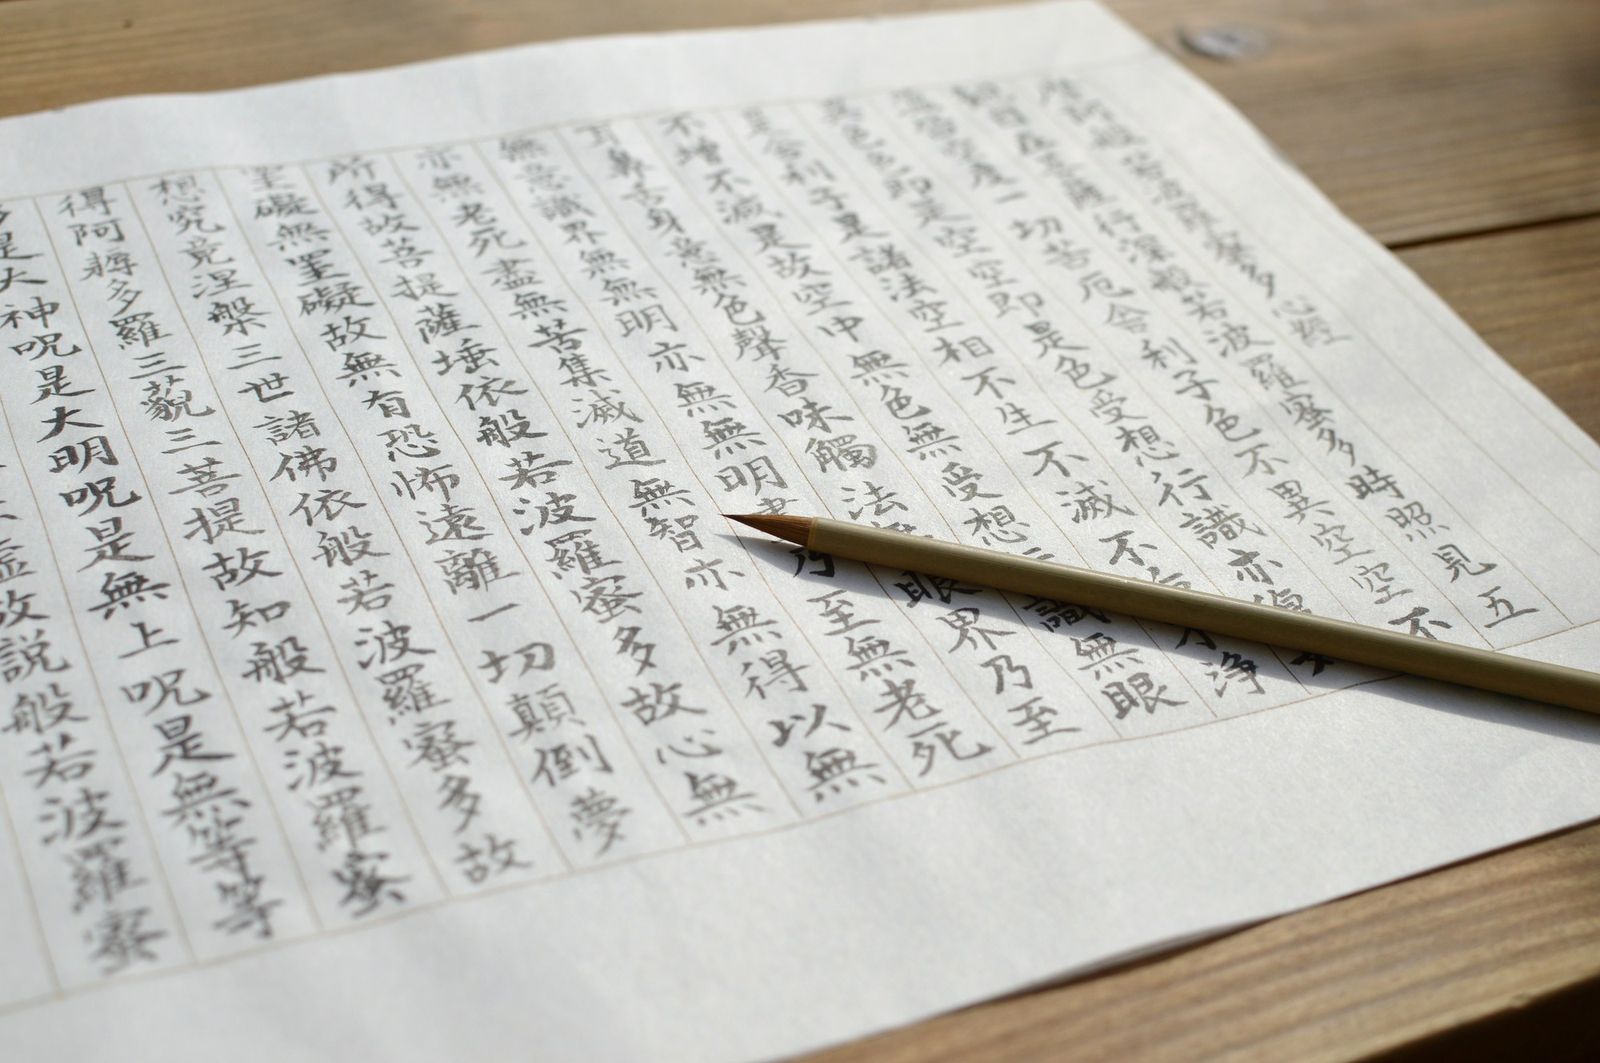 摩訶般若波羅蜜多心經
觀自在菩薩行深般若波羅蜜多時照見五
蘊皆空度一切苦厄舍利子色不異空空不
異色色即是空空即是色受想行識亦復
是舍利子是諸法空相不生不滅不不淨
不增不減是故空中無色無受想識無眼
耳鼻舌身意無色聲香味觸法無眼界乃至
無意識界無無明亦無無明盡乃至無老死
亦無老死盡無苦集滅道無智亦無得以無
所得故菩提薩埵依般若波羅蜜多故心無
罣礙無罣礙故無有恐怖遠離一切顛倒夢
想究竟涅槃三世諸佛依般若波羅蜜多故
得阿耨多羅三藐三菩提故知般若波羅蜜
多是大神呪是大明呪是無上呪是無等等
虛故説般若波羅蜜